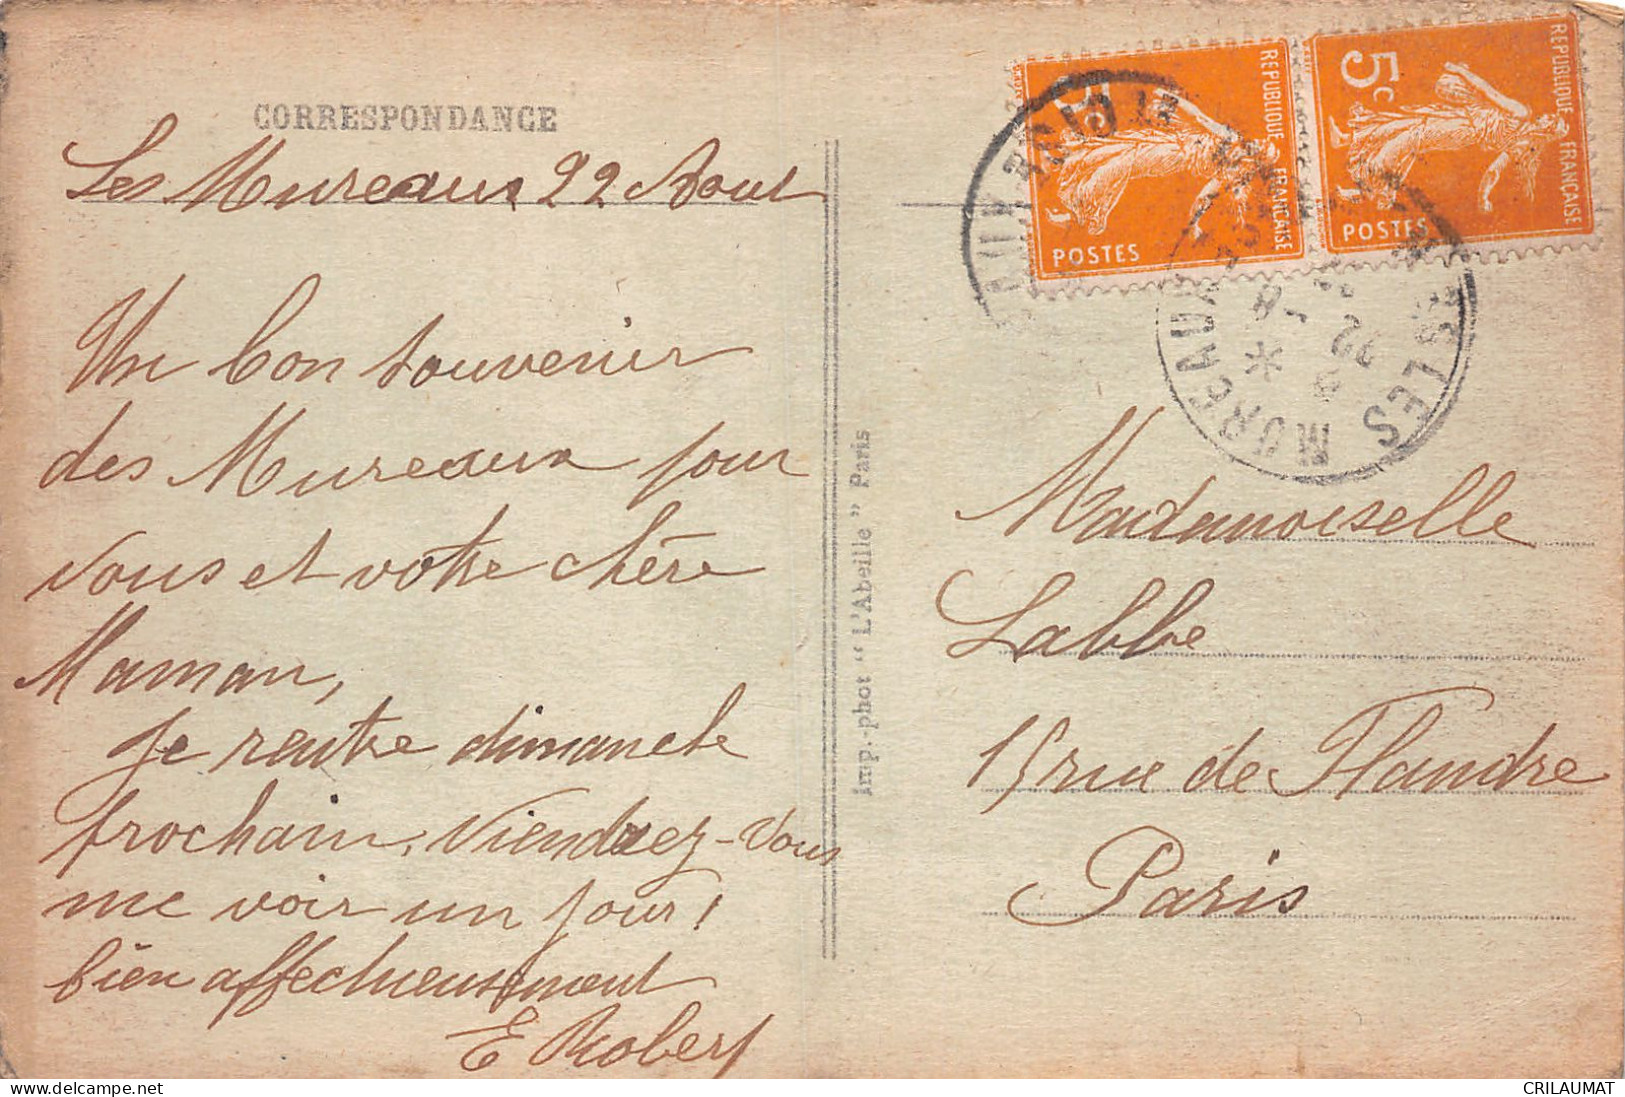 CORRESPONDANCE
Les Mureaux 22 Aout
Un bon souvenir
des Mureaux pour
vous et votre chère
Maman,
Je rentre dimanche
prochain, viendrez-vous
me voir un jour,
bien affectueusement
E Robert
Imp.-phot "L'Abeille" Paris
REPUBLIQUE FRANÇAISE
POSTES
5c
REPUBLIQUE FRANÇAISE
POSTES
LES MUREAUX
22
8
Mademoiselle
Labbe
15 rue de Flandre
Paris
CRILAUMAT